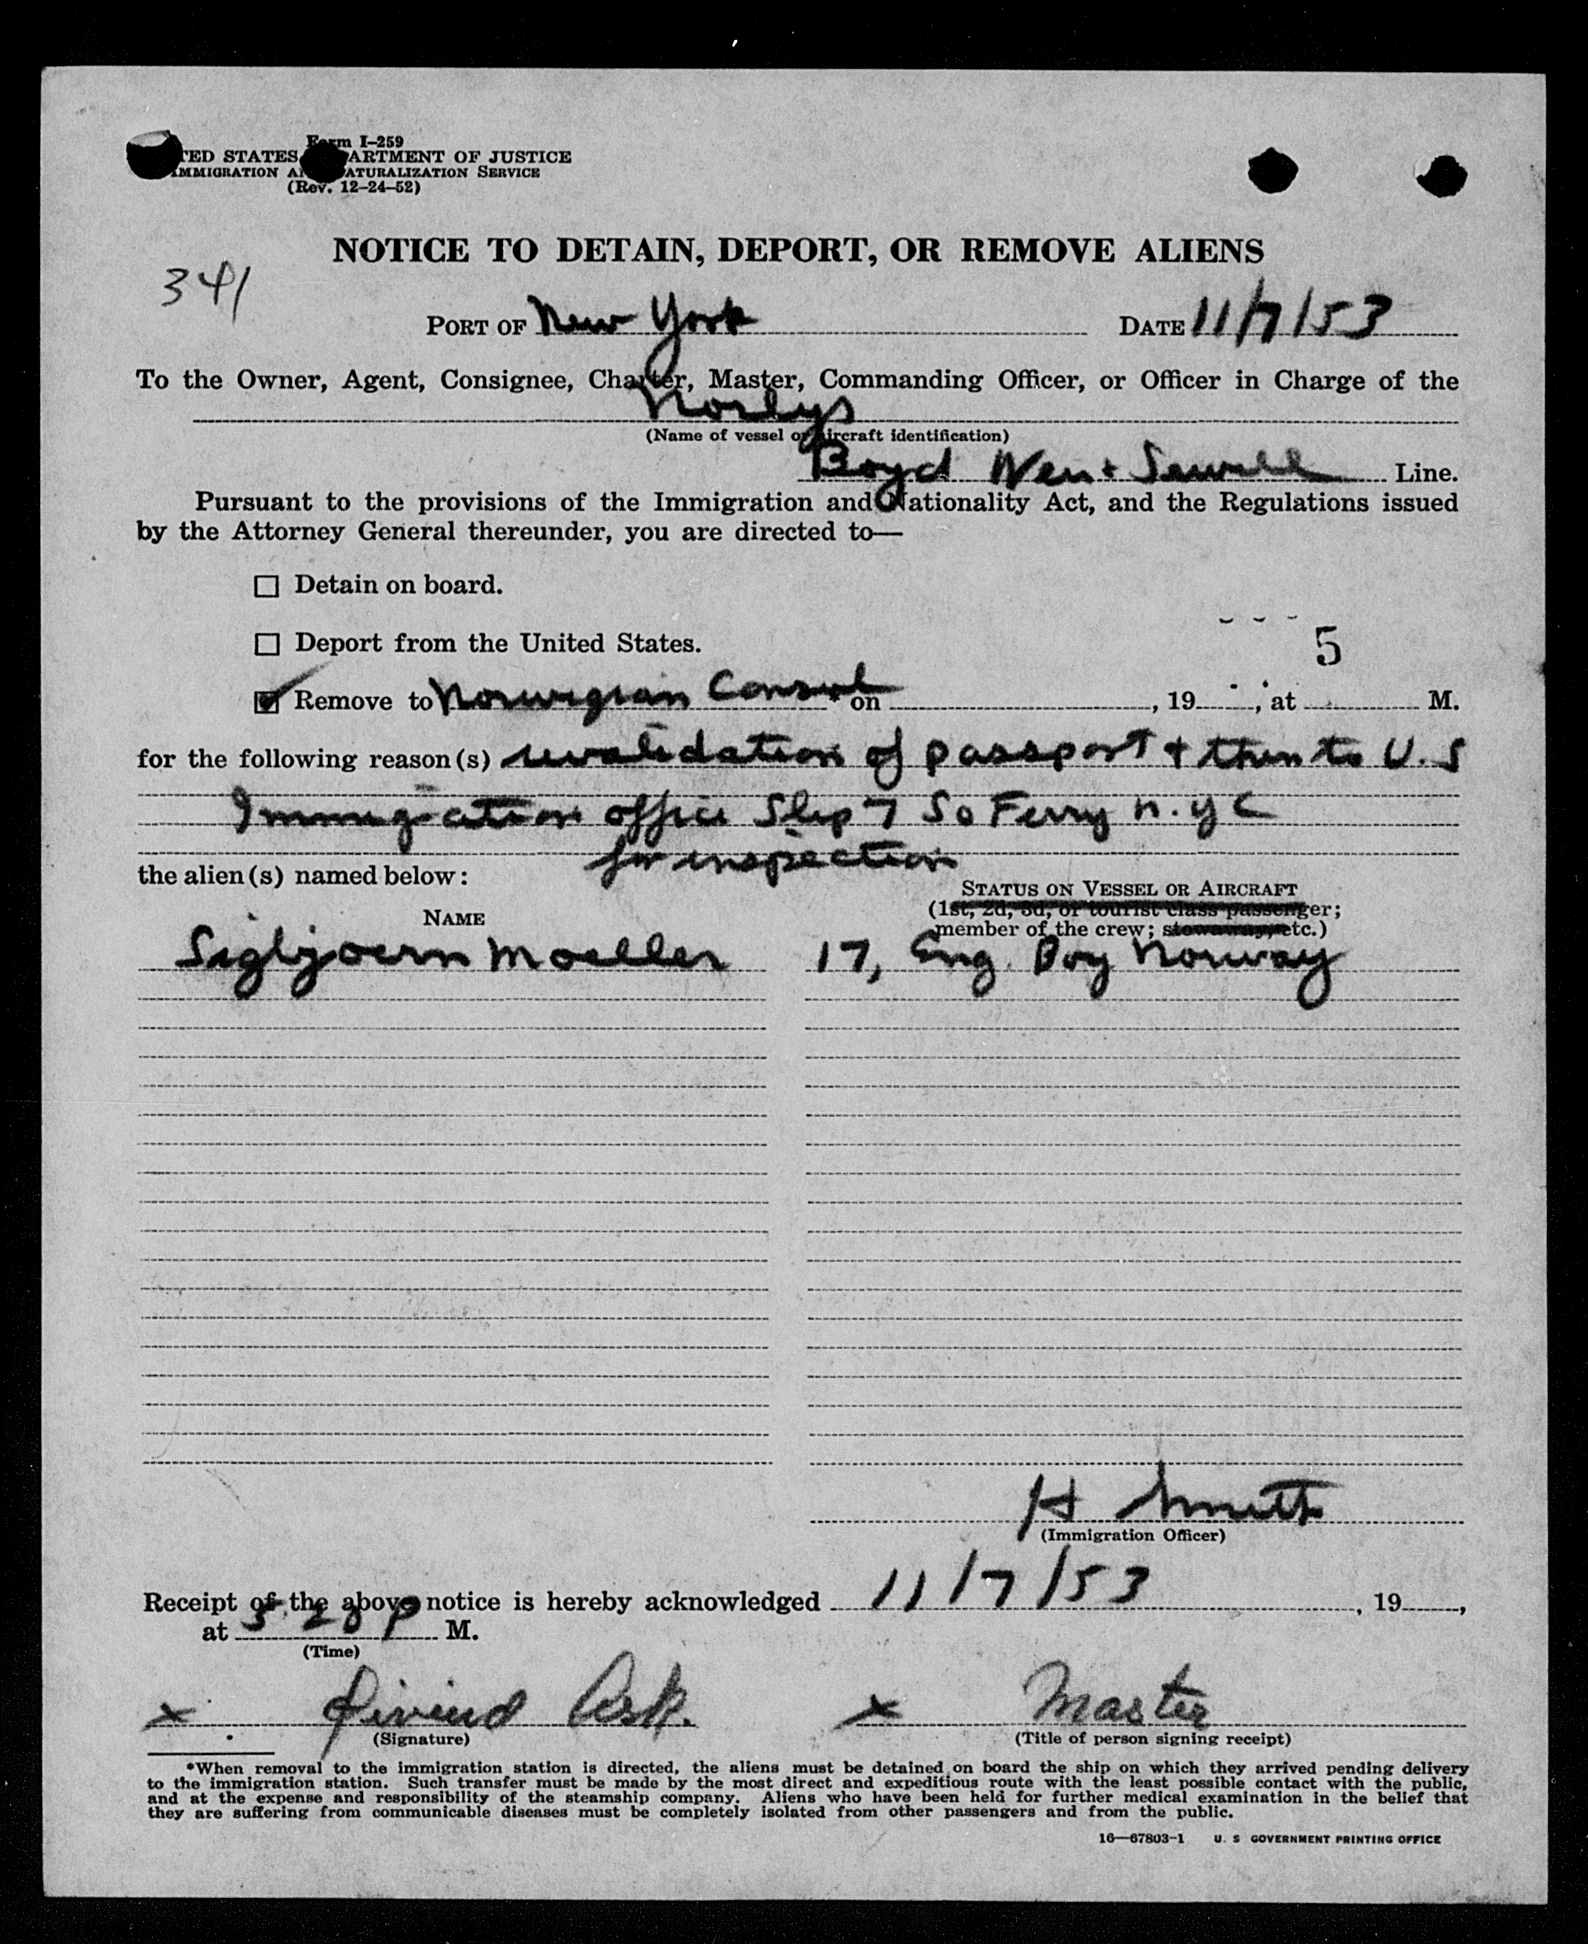 Form I-259
TED STATES ARTMENT OF JUSTICE
IMMIGRATION A ATURALIZATION SERVICE
(Rev. 12-24-52)
NOTICE TO DETAIN, DEPORT, OR REMOVE ALIENS
341
PORT OF New York DATE 11/7/53
To the Owner, Agent, Consignee, Charter, Master, Commanding Officer, or Officer in Charge of the
Norlys
(Name of vessel or aircraft identification)
Boyd Weir & Sewell Line.
Pursuant to the provisions of the Immigration and Nationality Act, and the Regulations issued
by the Attorney General thereunder, you are directed to—
☐ Detain on board.
☐ Deport from the United States.
5
☑ Remove to Norwegian Consul * on , 19 , at M.
for the following reason(s) revalidation of passport & then to U.S
Immigration office Slip 7 So Ferry N.Y C
for inspection
the alien(s) named below:
STATUS ON VESSEL OR AIRCRAFT
NAME (1st, 2d, 3d, or tourist class passenger;
member of the crew; stowaway, etc.)
Sigbjoern Moeller 17, Eng. Boy Norway
H Smith
(Immigration Officer)
Receipt of the above notice is hereby acknowledged 11/7/53 , 19 ,
at 5.20 P M.
(Time)
x Øivind Ask. x Master
(Signature) (Title of person signing receipt)
*When removal to the immigration station is directed, the aliens must be detained on board the ship on which they arrived pending delivery
to the immigration station. Such transfer must be made by the most direct and expeditious route with the least possible contact with the public,
and at the expense and responsibility of the steamship company. Aliens who have been held for further medical examination in the belief that
they are suffering from communicable diseases must be completely isolated from other passengers and from the public.
16—67803-1 U. S GOVERNMENT PRINTING OFFICE